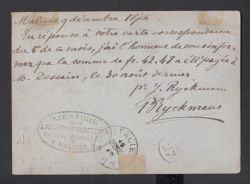 Malines 9 décembre 1876
En réponse à votre carte correspondance
du 5 de ce mois, j'ai l'honneur de vous infor-
mer que la somme de fr. 42.48 a été payée à
M. Dessain, le 30 août dernier.
pr J. Ryckmans
Ryckmans
LIBRAIRIE
MALINES